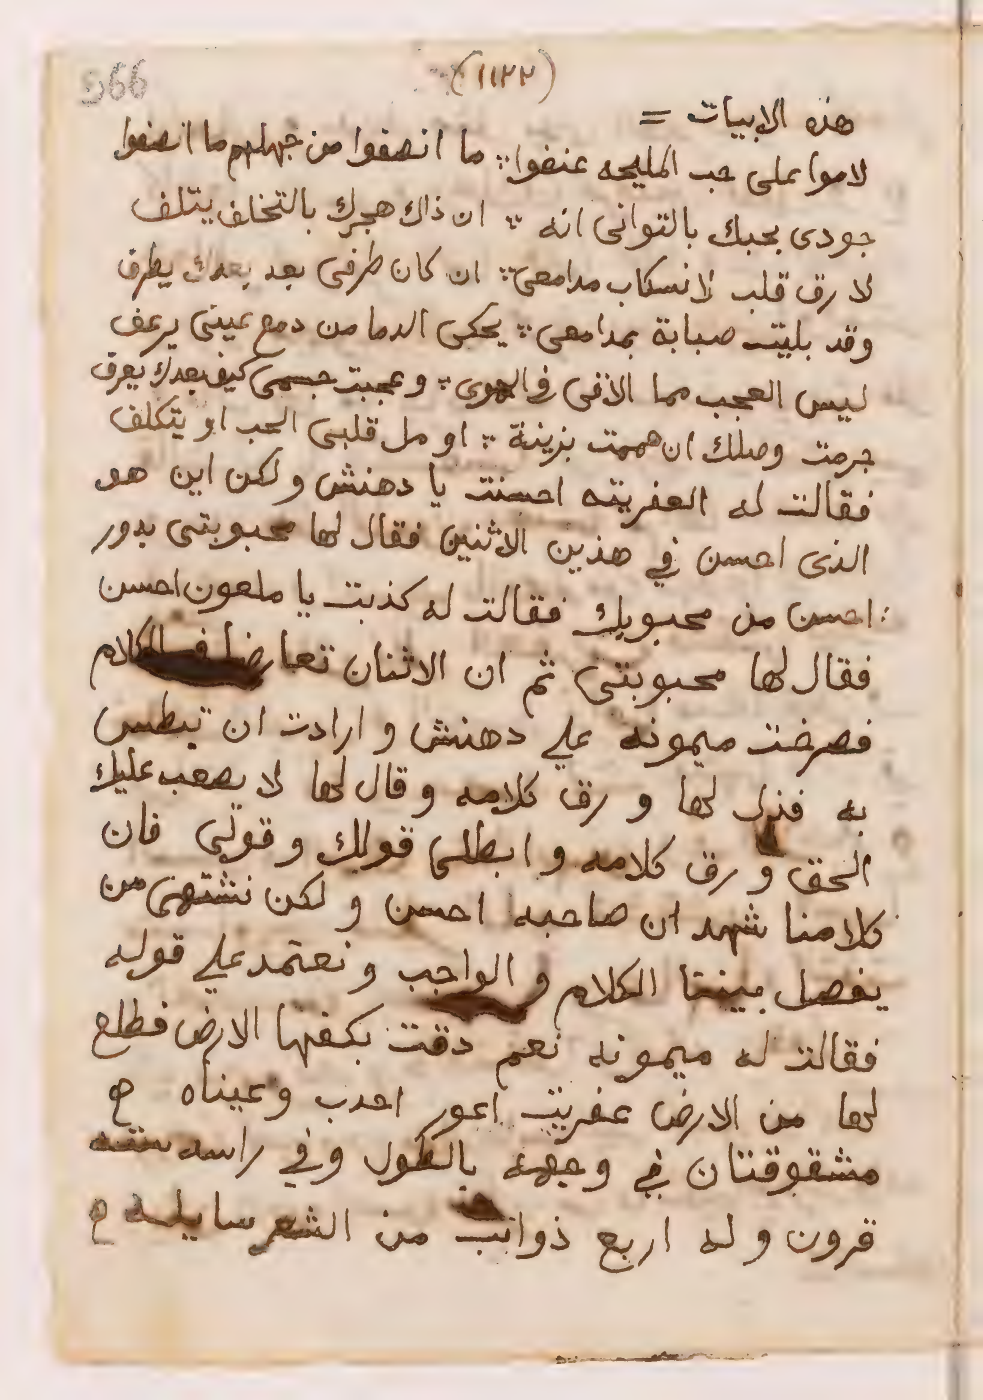 566
(١١٢٢)
هذه الابيات =
لاموا على حب المليحه عنفوا ∴ ما انصفوا من جهلهم ما انصفوا
جودى بحبك بالتوانى انه ∴ ان ذاك هجرك بالتخلف يتلف
لا رق قلب لانسكاب مدامعى ∴ ان كان طرفى بعد بعدك يطرف
وقد بليت صبابة بمدامعى ∴ يحكى الدما من دمع عينى يرعف
ليس العجب مما الاقى فى الهوى ∴ وعجبت جسمى كيف بعدك يعرف
حرمت وصلك ان هممت بزينة ∴ او مل قلبى الحب او يتكلف
فقالت له العفريته احسنت يا دهنش ولكن اين هو
الذى احسن في هذين الاثنين فقال لها محبوبتى بدور
احسن من محبوبك فقالت له كذبت يا ملعون احسن
فقال لها محبوبتى ثم ان الاثنان تعارضا فى الكلام
فصرخت ميمونه علي دهنش و ارادت ان تبطس
به فنزل لها و رق كلامه و قال لها لا يصعب عليك
الحق و رق كلامه و ابطلى قولك و قولي فان
كلامنا شهد ان صاحبه احسن و لكن نشتهى من
يفصل بيننا الكلام و الواجب و نعتمد علي قوله
فقالت له ميمونه نعم دقت بكفها الارض فطلع
لها من الارض عفريت اعور احدب وعيناه
مشقوقتان في وجهه بالطول وفي راسه سته
قرون و له اربع ذوائب من الشعر سايله